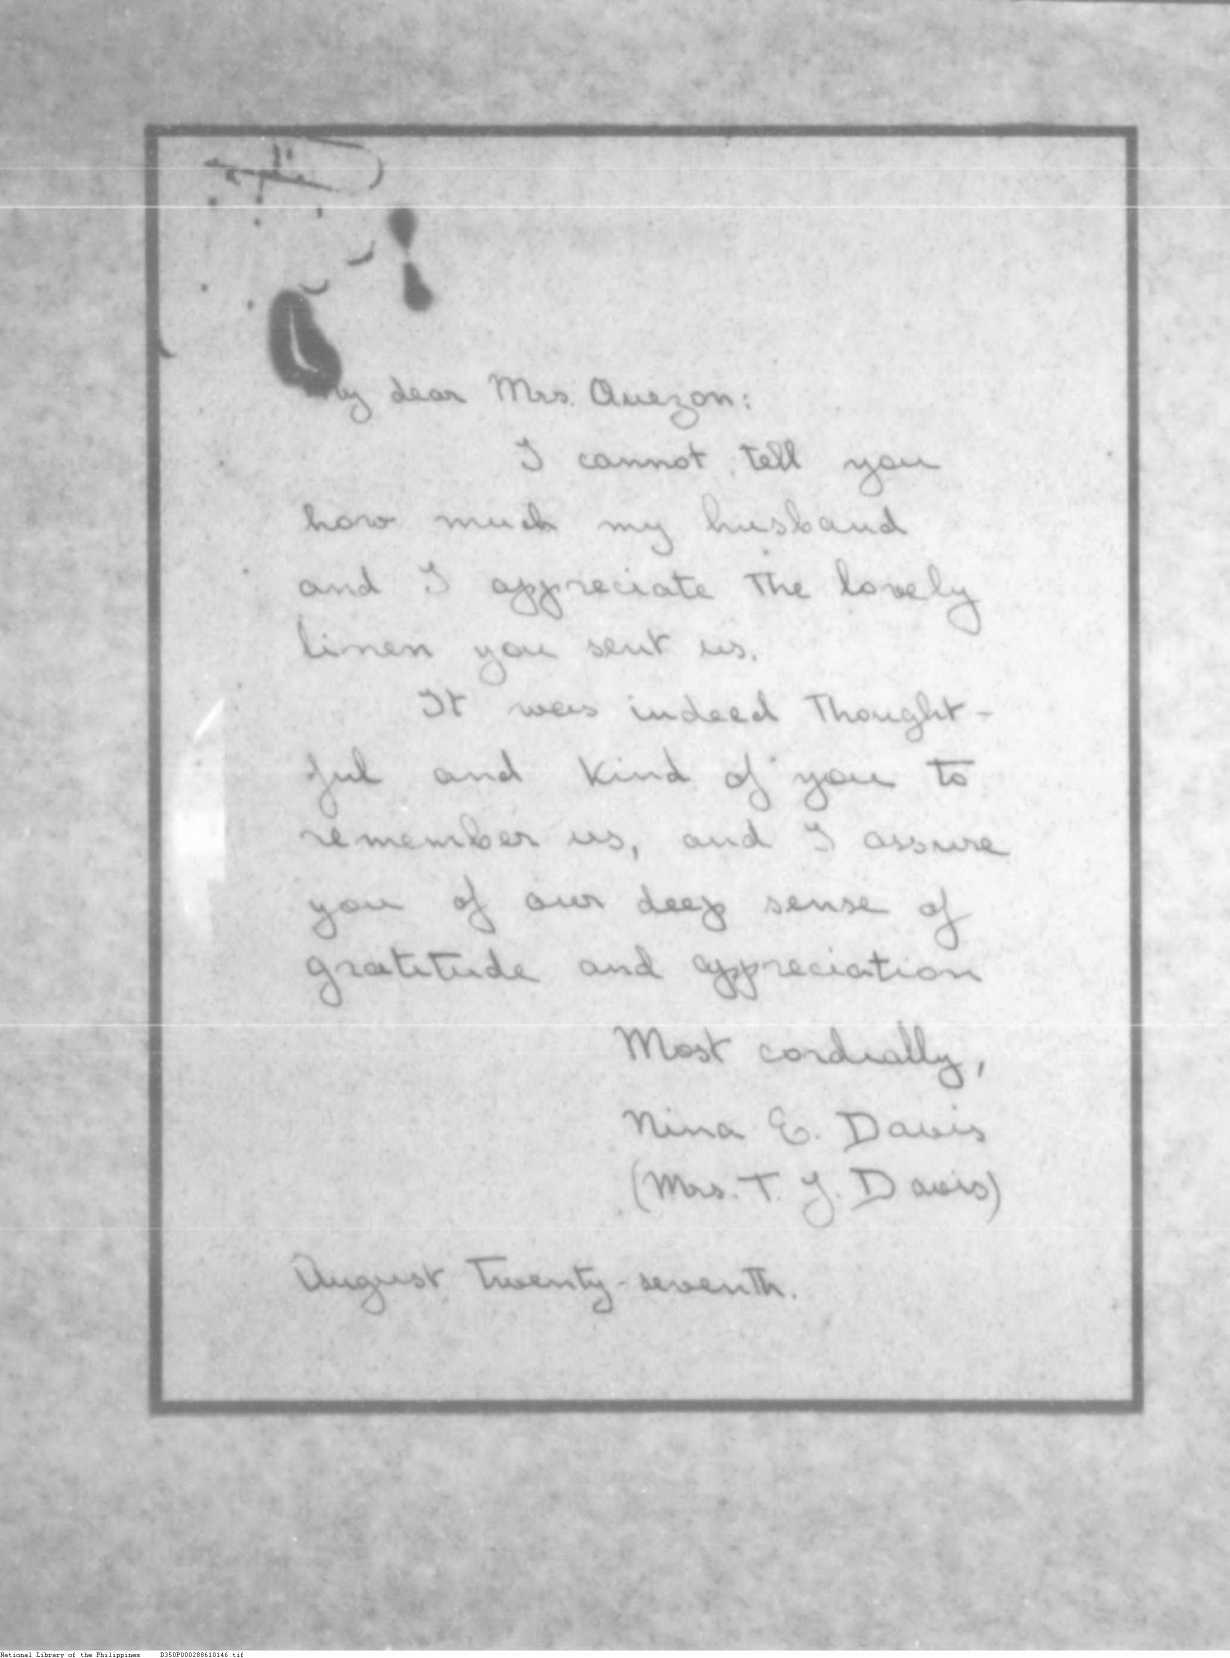 My dear Mrs. Quezon:
I cannot tell you
how much my husband
and I appreciate the lovely
linen you sent us.
It was indeed thought-
ful and kind of you to
remember us, and I assure
you of our deep sense of
gratitude and appreciation
Most cordially,
Nina E. Davis
(Mrs. T. J. Davis)
August twenty-seventh.
National Library of the Philippines D350P000288610146.tif